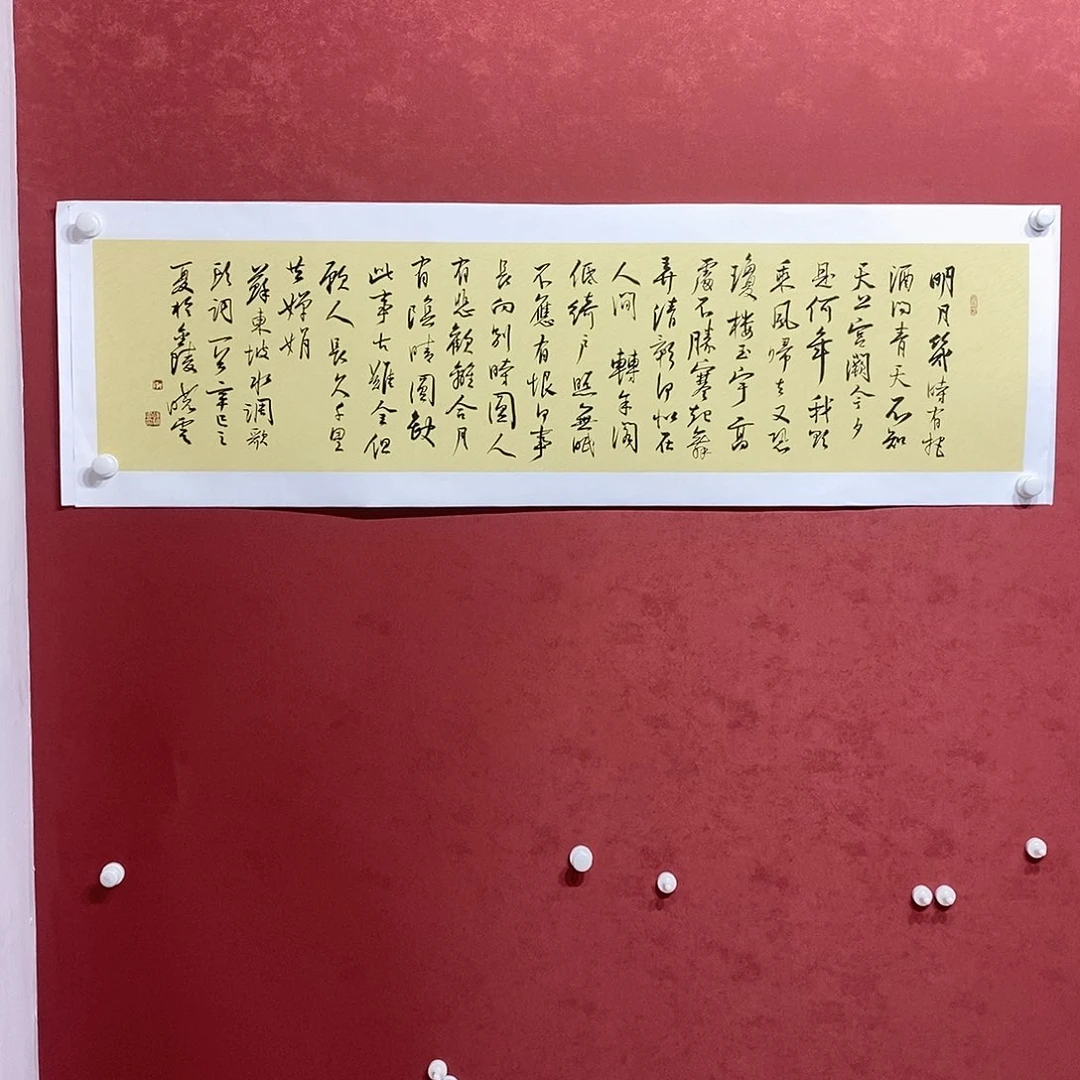 明月幾時有把
酒问青天不知
天上宫闕今夕
是何年我欲
乘風歸去又恐
瓊楼玉宇高
處不勝寒起舞
弄清影何似在
人间 轉朱阁
低绮户照無眠
不應有恨何事
長向别時圓人
有悲歡離合月
有陰晴圓缺
此事古難全但
願人長久千里
共嬋娟
蘇東坡水調歌
頭詞一首辛巳之
夏於金陵